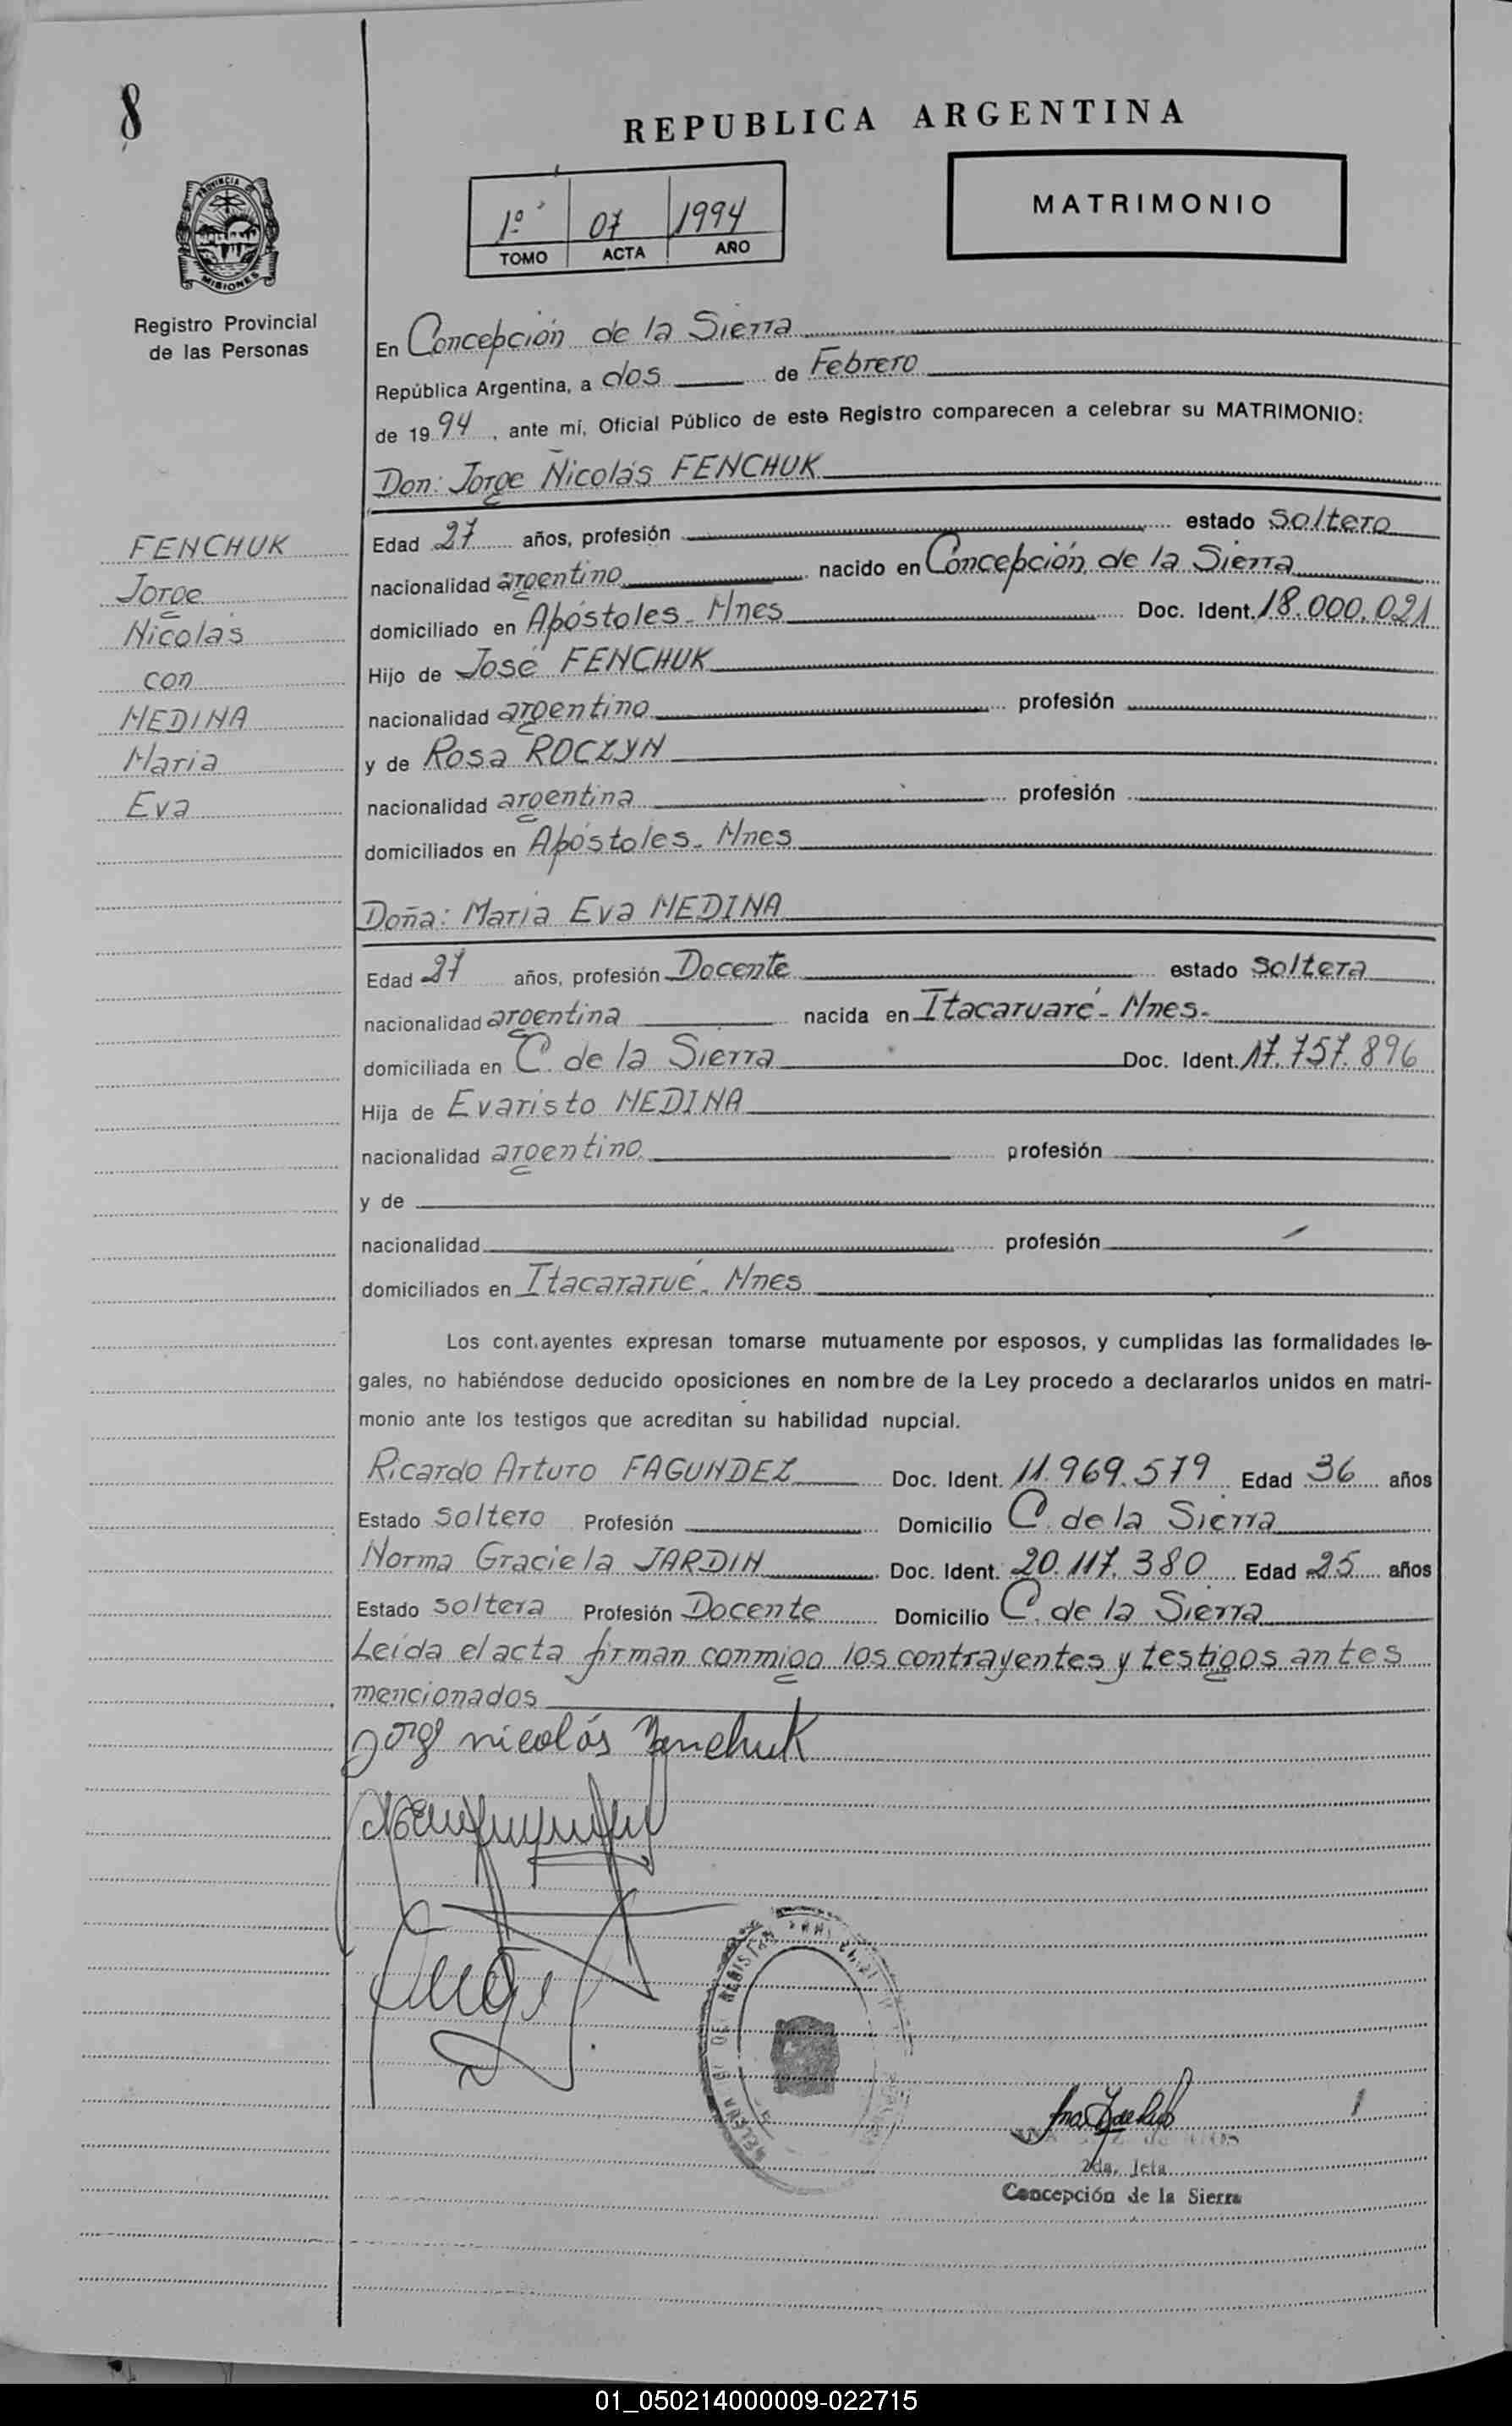 8
REPUBLICA ARGENTINA
PROVINCIA DE
MISIONES
1º 07 1994
TOMO ACTA AÑO
MATRIMONIO
Registro Provincial
de las Personas
En Concepción de la Sierra
República Argentina, a dos de Febrero
de 1994, ante mí, Oficial Público de este Registro comparecen a celebrar su MATRIMONIO:
Don: Jorge Nicolás FENCHUK
FENCHUK
Jorge
Nicolás
con
MEDINA
Maria
Eva
Edad 27 años, profesión estado soltero
nacionalidad argentino nacido en Concepción de la Sierra
domiciliado en Apóstoles - Mnes Doc. Ident. 18.000.021
Hijo de José FENCHUK
nacionalidad argentino profesión
y de Rosa ROCZYN
nacionalidad argentina profesión
domiciliados en Apóstoles - Mnes
Doña: María Eva MEDINA
Edad 27 años, profesión Docente estado soltera
nacionalidad argentina nacida en Itacaruaré - Mnes-
domiciliada en C. de la Sierra Doc. Ident. 17.757.896
Hija de Evaristo MEDINA
nacionalidad argentino profesión
y de
nacionalidad profesión
domiciliados en Itacararué - Mnes
Los cont.ayentes expresan tomarse mutuamente por esposos, y cumplidas las formalidades le-
gales, no habiéndose deducido oposiciones en nombre de la Ley procedo a declararlos unidos en matri-
monio ante los testigos que acreditan su habilidad nupcial.
Ricardo Arturo FAGUNDEZ Doc. Ident. 11.969.579 Edad 36 años
Estado soltero Profesión Domicilio C. de la Sierra
Norma Graciela JARDIN Doc. Ident. 20.117.380 Edad 25 años
Estado soltera Profesión Docente Domicilio C. de la Sierra
Leída el acta firman conmigo los contrayentes y testigos antes
mencionados
Jorge nicolás Fenchuk
2da. Jefa
Concepción de la Sierra
01_050214000009-022715